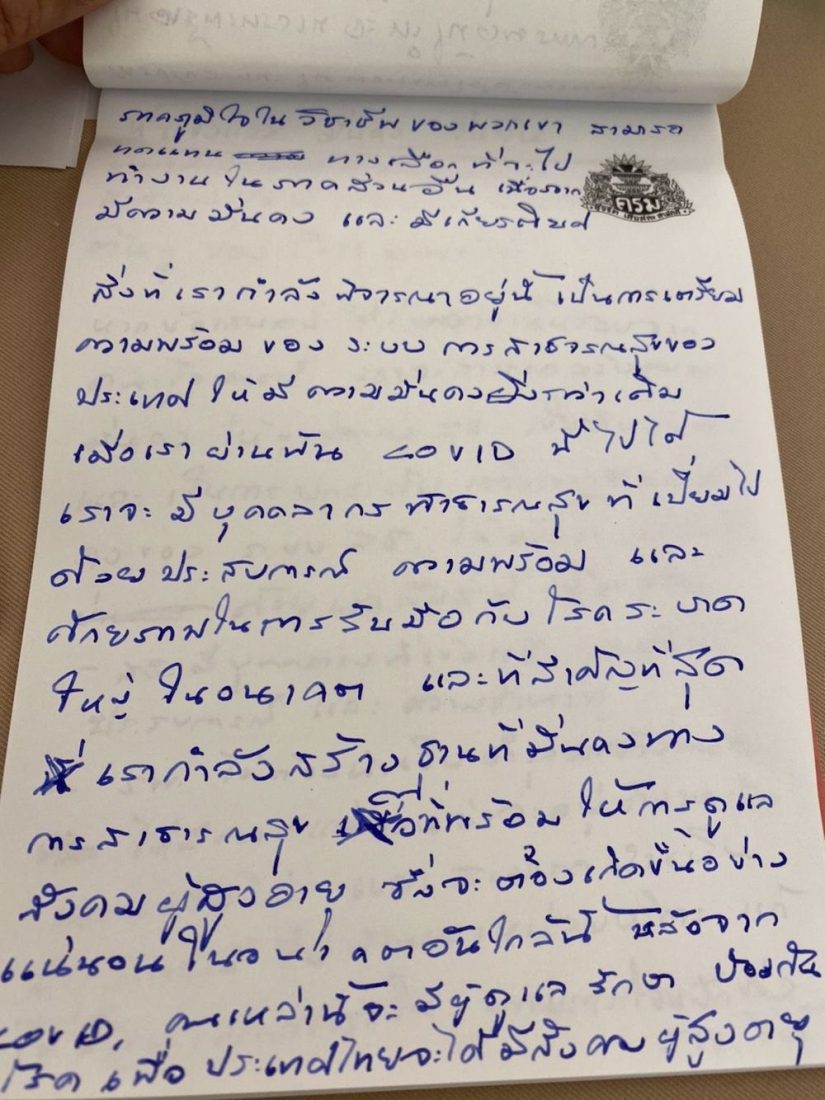 ภาคภูมิใจใน วิชาชีพ ของ พวกเขา สามารถ
ทดแทน ทางเลือก ที่จะไป
ทำงาน ใน ภาคส่วนอื่น เนื่องจาก
มีความมั่นคง และ มีเกียรติยศ
ครม
สิ่งที่ เรากำลัง พิจารณาอยู่นี้ เป็นการเตรียม
ความพร้อม ของ ระบบ การสาธารณสุขของ
ประเทศ ให้มี ความมั่นคงยิ่งกว่าเดิม
เมื่อเรา ผ่านพ้น COVID นี้ไปได้
เราจะ มี บุคคลากร สาธารณสุข ที่ เปี่ยมไป
ด้วย ประสบการณ์ ความพร้อม และ
ศักยภาพในการรับมือ กับ โรคระบาด
ใหญ่ ในอนาคต และที่สำคัญที่สุด
เรากำลัง สร้าง ฐานที่มั่นคงทาง
การสาธารณสุข ที่พร้อม ให้การดูแล
สังคมผู้สูงอายุ ซึ่งจะ ต้องเกิดขึ้นอย่าง
แน่นอน ในอนาคตอันใกล้นี้ หลังจาก
COVID, คนเหล่านี้จะ มีผู้ดูแล รักษา ป้องกัน
โรค เพื่อ ประเทศไทยจะได้ มีสังคม ผู้สูงอายุ